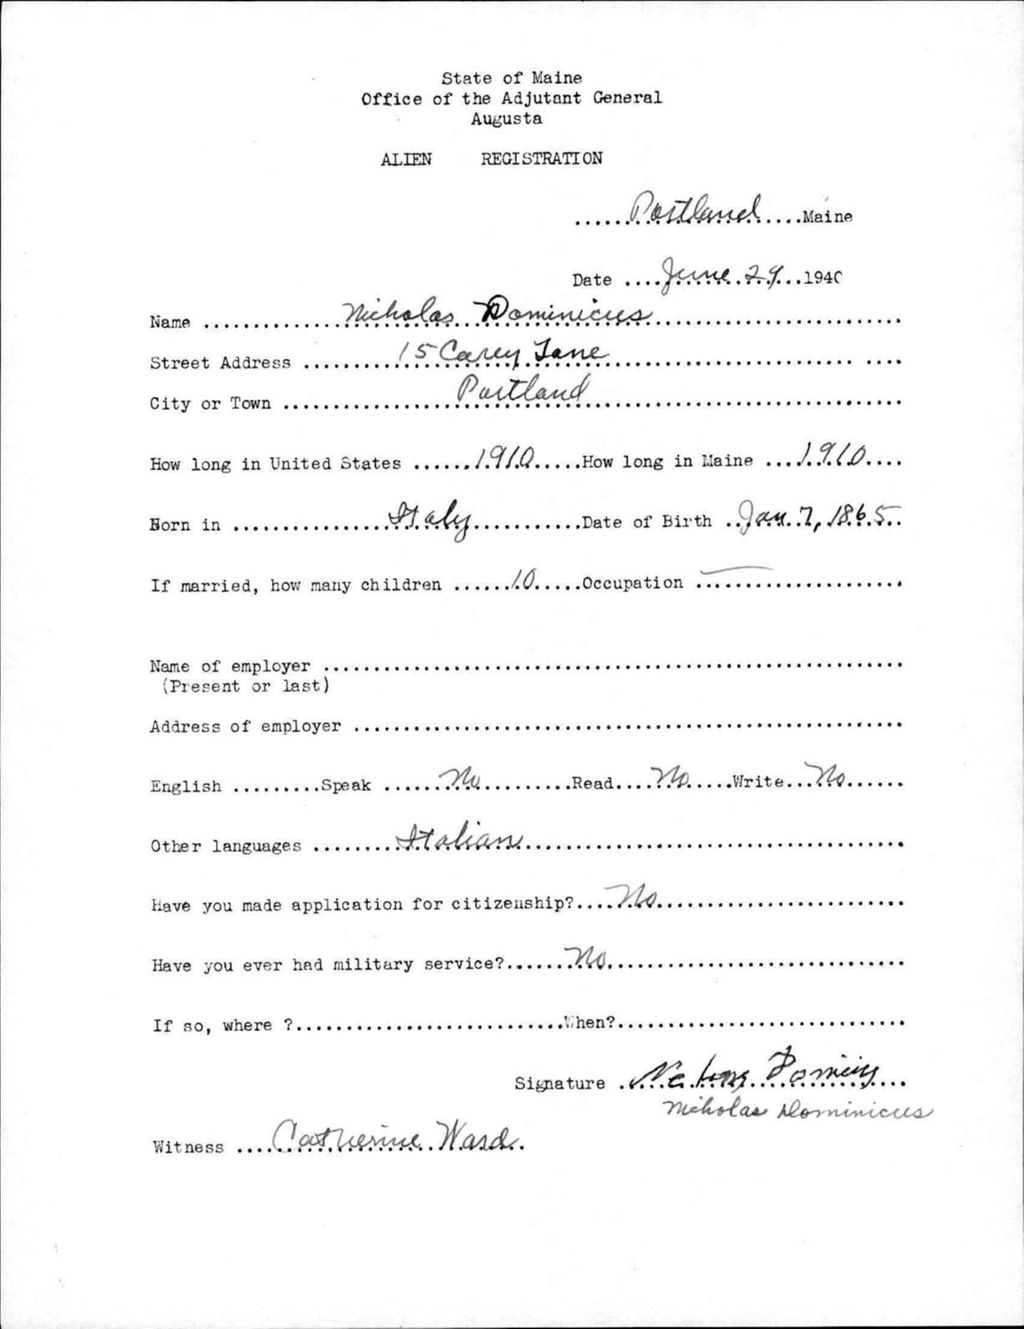 State of Maine
Office of the Adjutant General
Augusta
ALIEN REGISTRATION
......Portland....Maine
Date ....June 29...1940
Name ..............Nicholas Dominicus..........................
Street Address ..........15 Carey Lane..............................
City or Town .................Portland................................
How long in United States ......1910.....How long in Maine ...1910....
Born in ...............Italy...........Date of Birth ..Jan. 7, 1865..
If married, how many children ......10.....Occupation .....................
Name of employer ..........................................................
(Present or last)
Address of employer .......................................................
English .........Speak ......No.........Read....No.....Write...No......
Other languages ........Italian......................................
Have you made application for citizenship?....No.........................
Have you ever had military service?.......No..............................
If so, where ?...........................When?.............................
Signature
Nicholas Dominicus
Witness ....Catherine Ward.